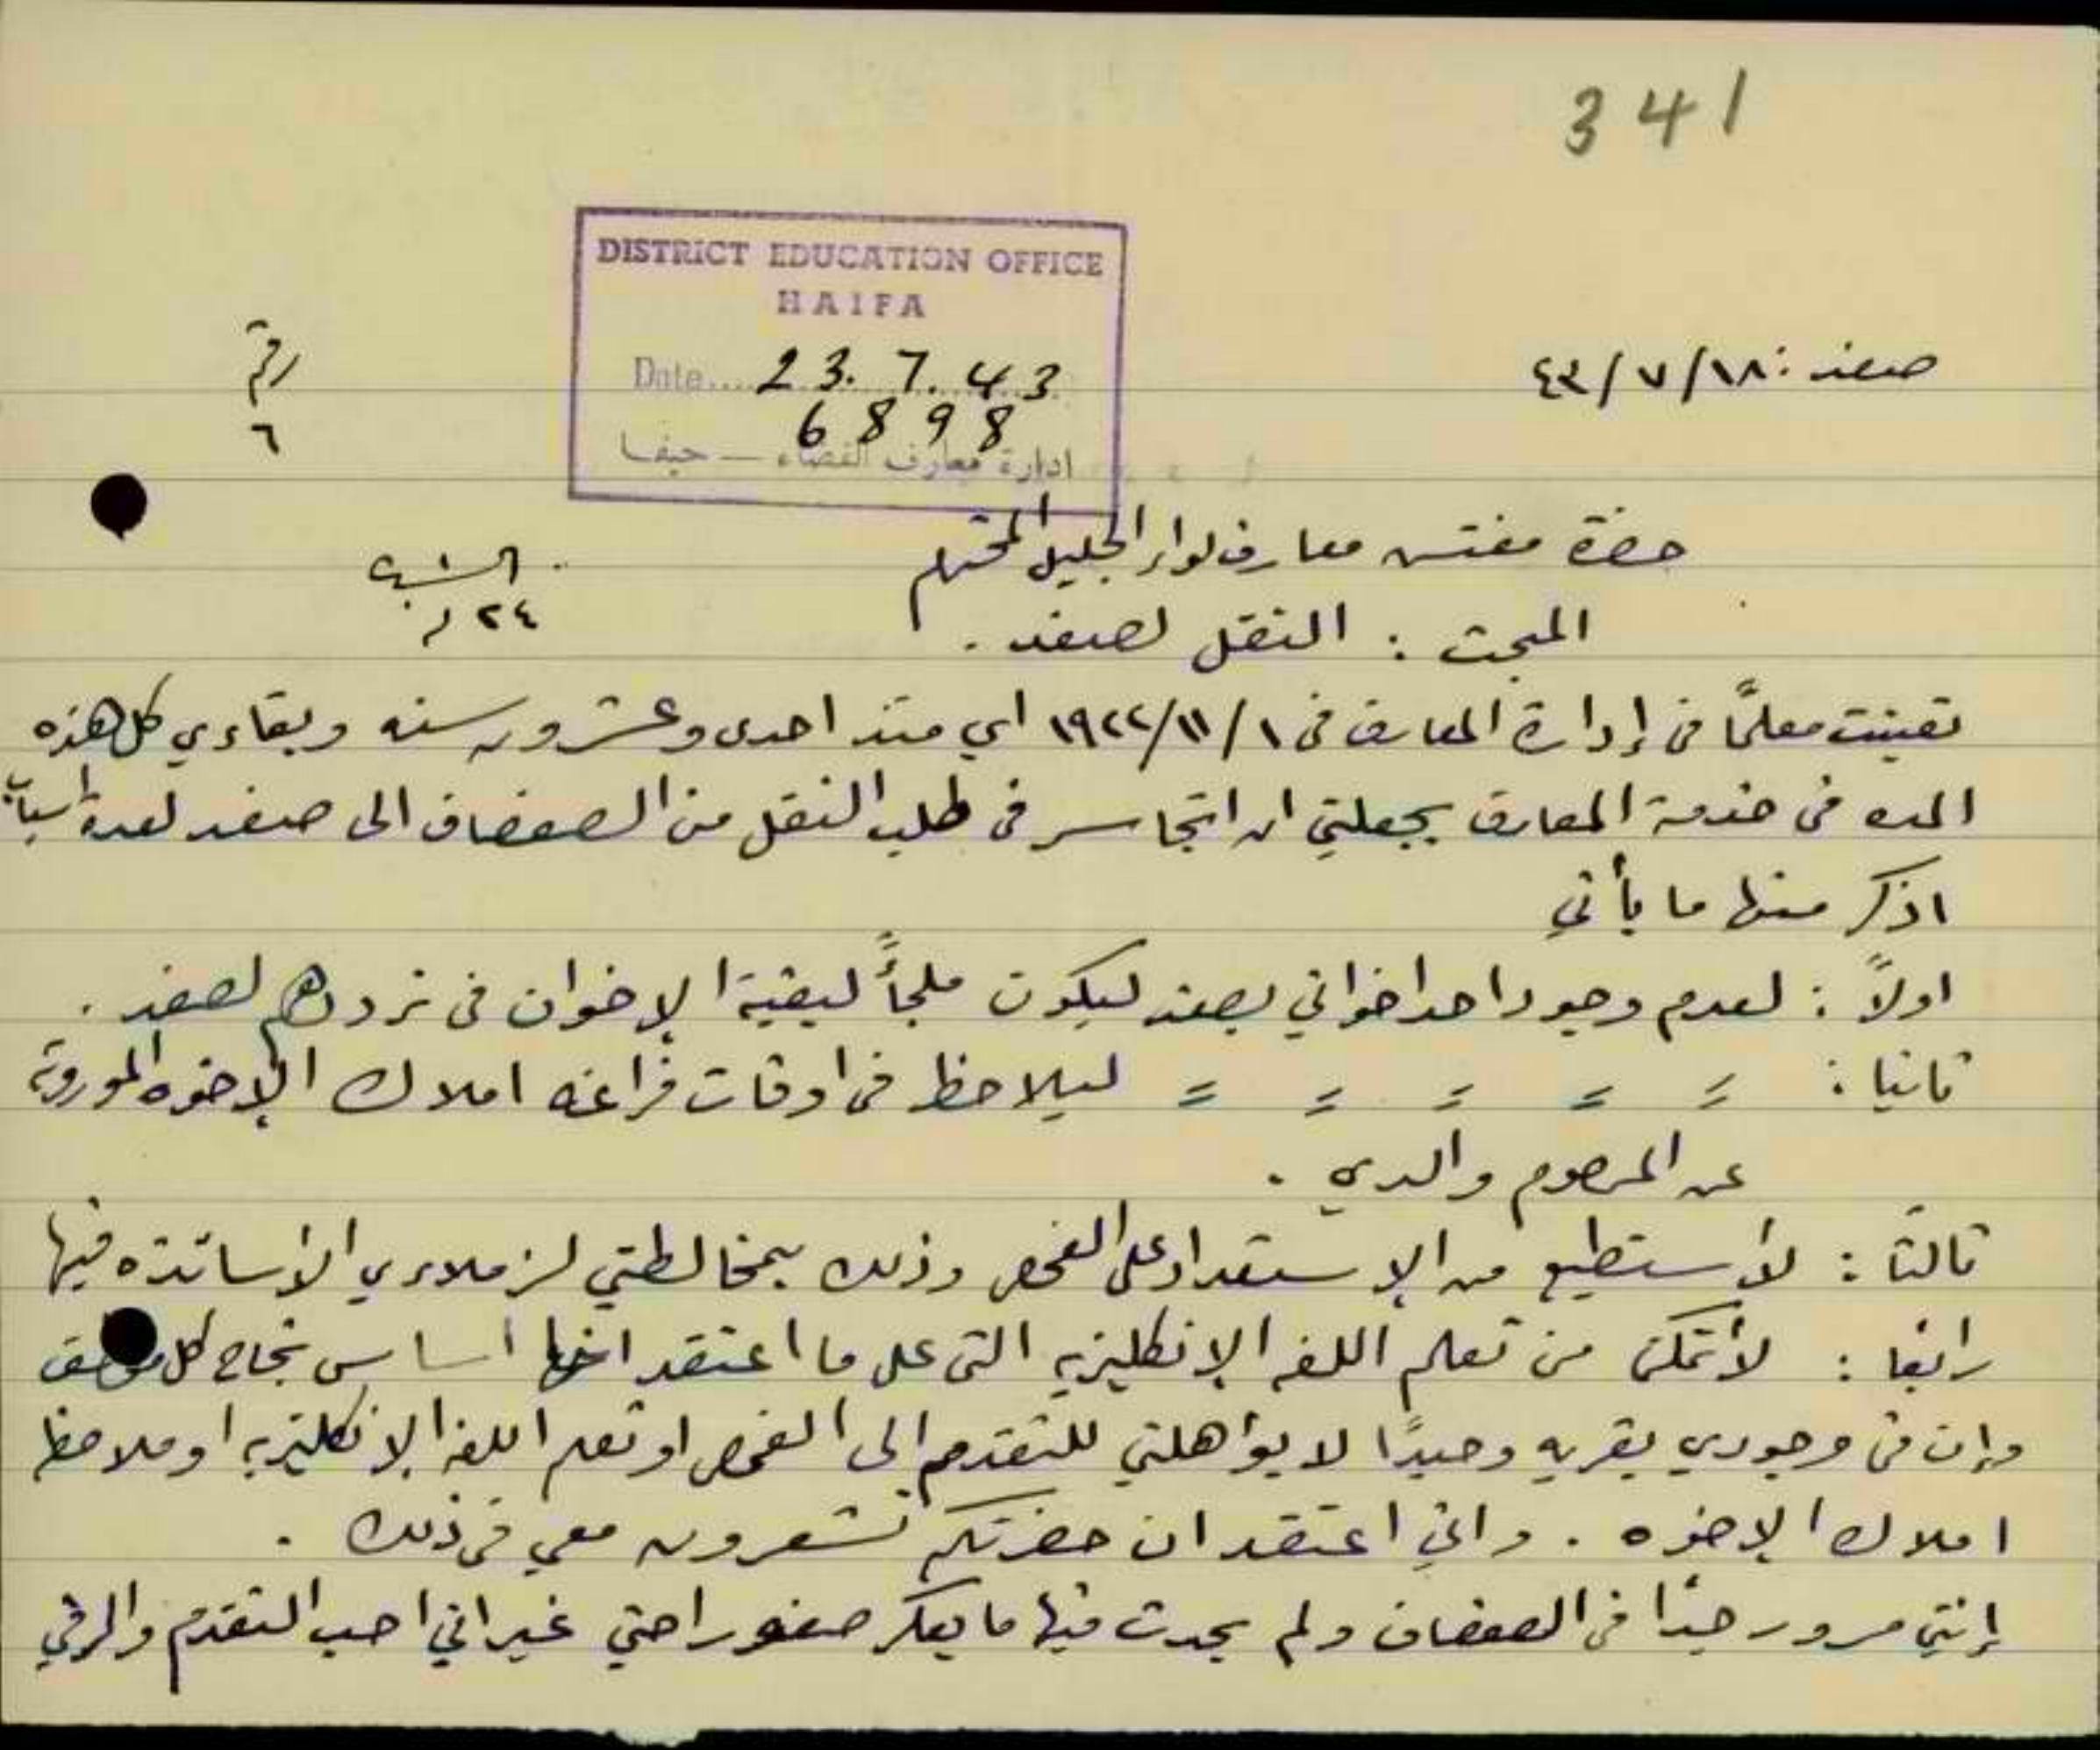 341
DISTRICT EDUCATION OFFICE
HAIFA
Date.... 23.7.43
6898
ادارة معارف القضاء — حيفا
صفد: ١٨/٧/٤٣
رقم
٦
حضرة مفتش معارف لواء الجليل المحترم
٢٤
المبحث : النقل لصفد .
تعينت معلمًا في إدارة المعارف في ١/١١/١٩٢٢ اي منذ احدى وعشرون سنه وبقاءي كل هذه
المده في خدمة المعارف يجعلني ان اتجاسر في طلب النقل من الصفصاف الى صفد لعدة اسباب
اذكر منها ما يأتي
اولاً : لعدم وجود احد اخواني بصفد ليكون ملجأً لبقية الإخوان في ترددهم لصفد .
ثانيا : = = = = = ليلاحظ في اوقات فراغه املاك الإخوه الموروثة
عن المرحوم والدي .
ثالثا : لأستطيع من الإستعداد على الفحص وذلك بمخالطتي لزملاءي الأساتذه فيها
رابعا : لأتمكن من تعلم اللغه الإنكليزيه التي على ما اعتقد انها اساس نجاح كل موظف
وإن في وجودي بقريه وحيدًا لا يؤاهلني للتقدم الى الفحص او تعلم اللغه الإنكليزيه او ملاحظة
املاك الإخوه . واني اعتقد ان حضرتكم تشعرون معي في ذلك .
إنني مسرور جدًا في الصفصاف ولم يحدث فيها ما يعكر صفو راحتي غير اني احب التقدم والرقي